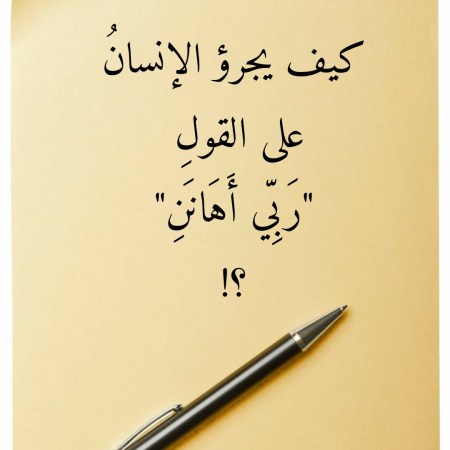 كيف يجرؤ الإنسانُ
على القولِ
"رَبِّي أَهَانَنِ"
؟!